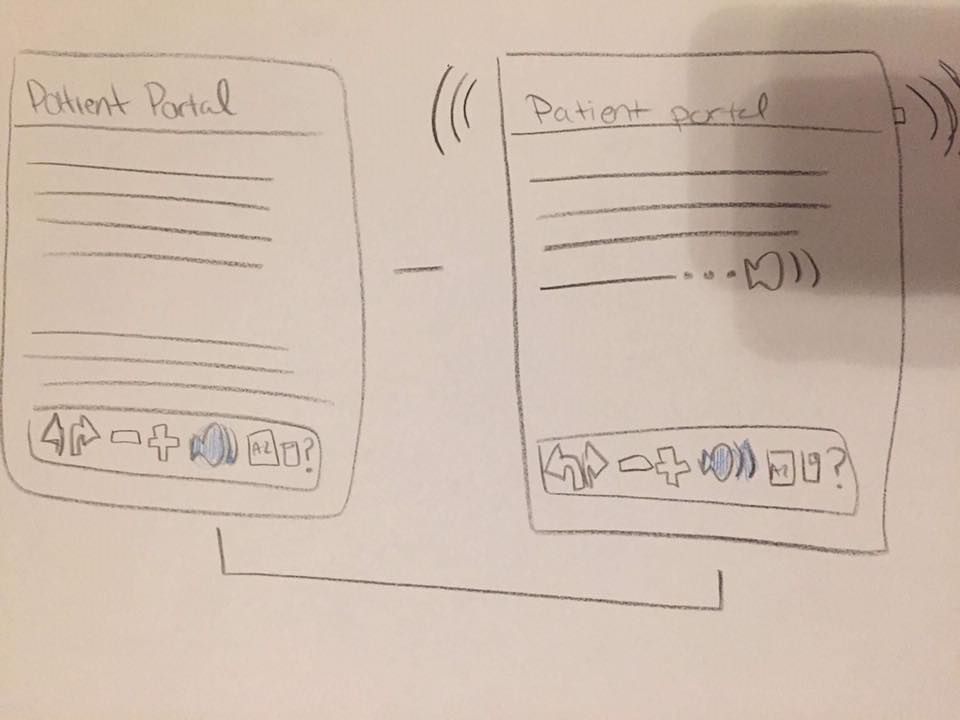 Patient Portal
Patient portal
A-Z
?
A-Z
?